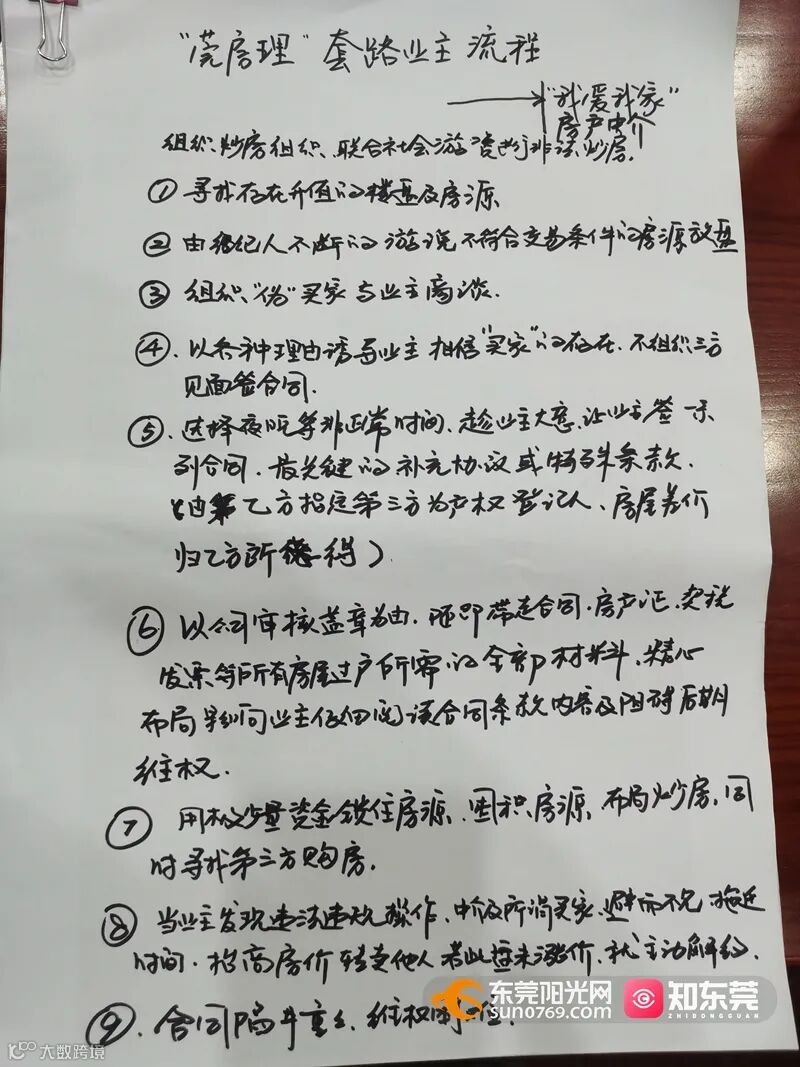 "莞房理"套路业主流程
"我爱我家"
房产中介
组织炒房组织、联合社会游资进行非法炒房.
① 寻找存在升值的楼盘及房源
② 由经纪人不断的游说不符合交易条件的房源放盘
③ 组织"伪"买家与业主商谈.
④、以各种理由诱导业主相信"买家"的存在、不组织三方
见面签合同.
⑤、选择夜晚等非正常时间、趁业主大意、让业主签一系
列合同、最关键的补充协议或特殊条款.
(由乙方指定第三方为产权登记人、房屋差价
归乙方所得)
⑥ 以公司审核盖章为由、随即带走合同、房产证、契税
发票等所有房屋过户所需的全部材料、精心
布局 业主仔细阅读合同条款内容及阻碍后期
维权.
⑦ 用极少量资金锁住房源、囤积房源、布局炒房、同
时寻找第三方购房.
⑧ 当业主发现违法违规操作、中介及所谓买家避而不见拖延
时间、抬高房价转卖他人 若此盘未涨价、就主动解约.
⑨、合同陷井重重、维权困难.
东莞阳光网
sun0769.com
知东莞
ZHIDONGGUAN
大数跨境